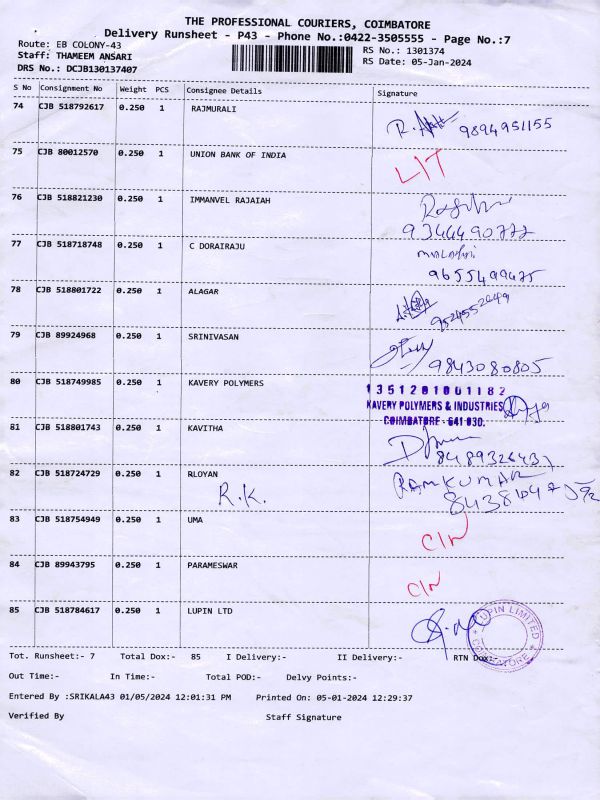 THE PROFESSIONAL COURIERS, COIMBATORE
Delivery Runsheet - P43 - Phone No.:0422-3505555 - Page No.:7
Route: EB COLONY-43
RS No.: 1301374
Staff: THAMEEM ANSARI
RS Date: 05-Jan-2024
DRS No.: DCJB130137407
S No Consignment No Weight PCS Consignee Details Signature
74 CJB 518792617 0.250 1 RAJMURALI
9894951155
75 CJB 80012570 0.250 1 UNION BANK OF INDIA
LIT
76 CJB 518821230 0.250 1 IMMANVEL RAJAIAH
9344490772
77 CJB 518718748 0.250 1 C DORAIRAJU
9655499475
78 CJB 518801722 0.250 1 ALAGAR
79 CJB 89924968 0.250 1 SRINIVASAN
9843080805
80 CJB 518749985 0.250 1 KAVERY POLYMERS
1351201001182
KAVERY POLYMERS & INDUSTRIES
COIMBATORE - 641 030.
81 CJB 518801743 0.250 1 KAVITHA
82 CJB 518724729 0.250 1 RLOYAN
RAMKUMAR
R.K.
83 CJB 518754949 0.250 1 UMA
84 CJB 89943795 0.250 1 PARAMESWAR
85 CJB 518784617 0.250 1 LUPIN LTD
LUPIN LIMITED
COIMBATORE
Tot. Runsheet:- 7 Total Dox:- 85 I Delivery:- II Delivery:- RTN Dox:-
Out Time:- In Time:- Total POD:- Delvy Points:-
Entered By :SRIKALA43 01/05/2024 12:01:31 PM Printed On: 05-01-2024 12:29:37
Verified By Staff Signature